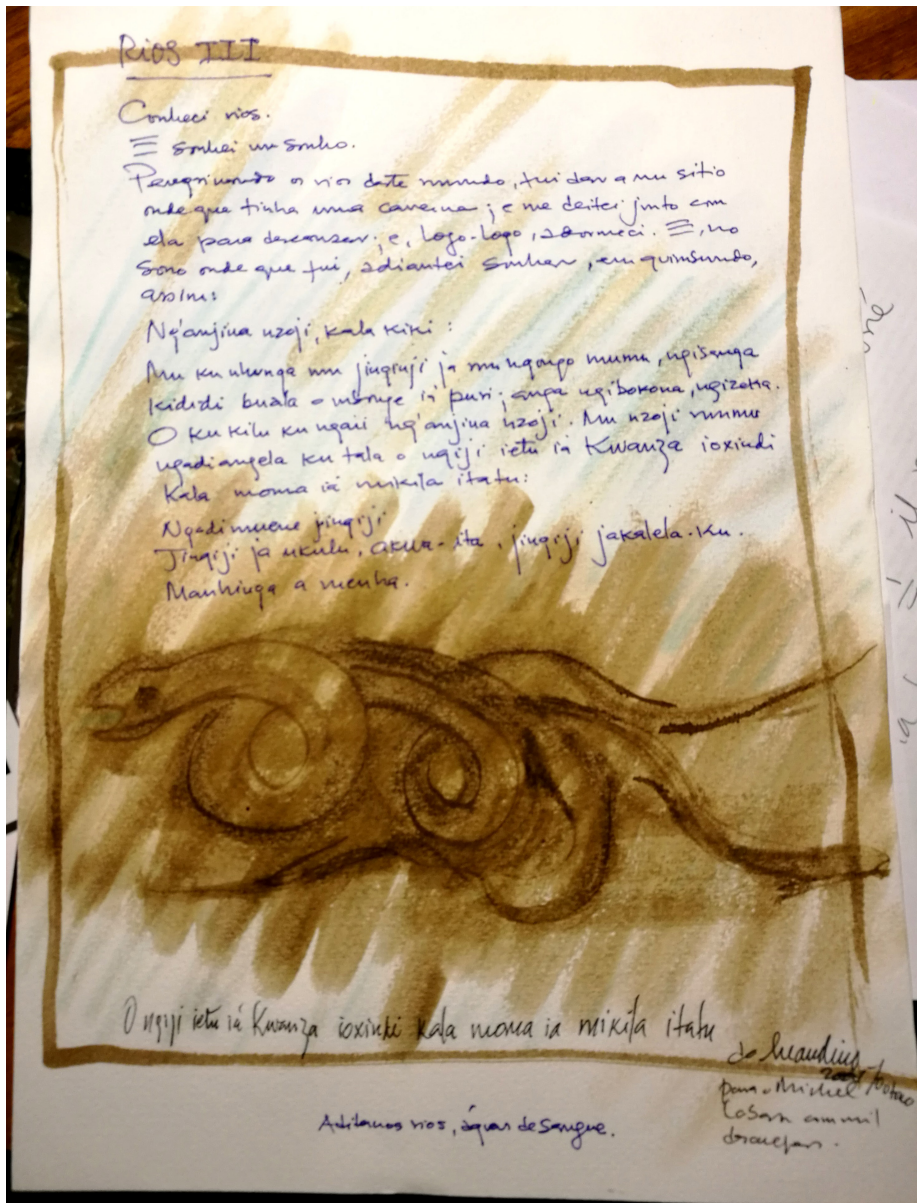 Rios III
Conheci rios.
E sonhei um sonho.
Peregrinando os rios deste mundo, fui dar a um sítio
onde que tinha uma caverna; e me deitei junto com
ela para descansar; e, logo-logo, adormeci. E, no
sono onde que fui, adiantei sonhar, em quimbundo,
assim:
Ng'anjina nzoji, kala kiki:
Mu ku nhunga mu jingiji ja mu ngongo mumu, ngisanga
kididi buala o mbonge ia puri; anga ngiborona, ngizeka.
O ku kilu ku ngaii ng'anjina nzoji. Mu nzoji mumu
ngadiangela ku tala o ngiji ietu ia Kwanza ioxindi
kala moma ia mikila itatu:
Ngadimuene jingiji
Jingiji ja ukulu, akua-ita, jingiji jakalela-ku.
Manhinga a menha.
O ngiji ietu iá Kwanza ioxindi kala moma ia mikila itatu
do Luandino
para o Michel
abraços.
rios, águas de sangue.